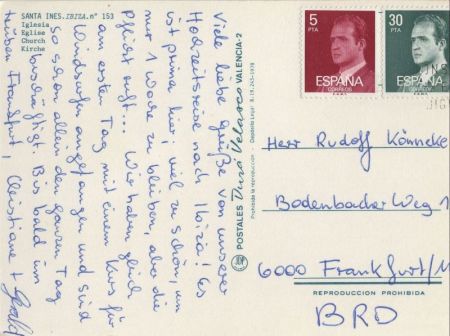 SANTA INES. IBIZA. nº 153
Iglesia
Église
Church
Kirche
Viele liebe Grüße von unserer
Hochzeitsreise nach Ibiza! Es
ist prima hier; viel zu schön, um
nur 1 Woche zu bleiben, aber die
Pflicht ruft... Wir haben gleich
am ersten Tag mit einem Kurs für
Windsurfen angefangen und sind
so schon allein den ganzen Tag
beschäftigt. Bis bald im
trüben Frankfurt, Christiane +
POSTALES Durá Velasco VALENCIA-2
Prohibida la reproducción
5
PTA
ESPAÑA
CORREOS
30
PTA
ESPAÑA
CORREOS
Herr Rudolf Könneke
Bodenbacher Weg 1
6000 Frankfurt/M
REPRODUCCION PROHIBIDA
BRD